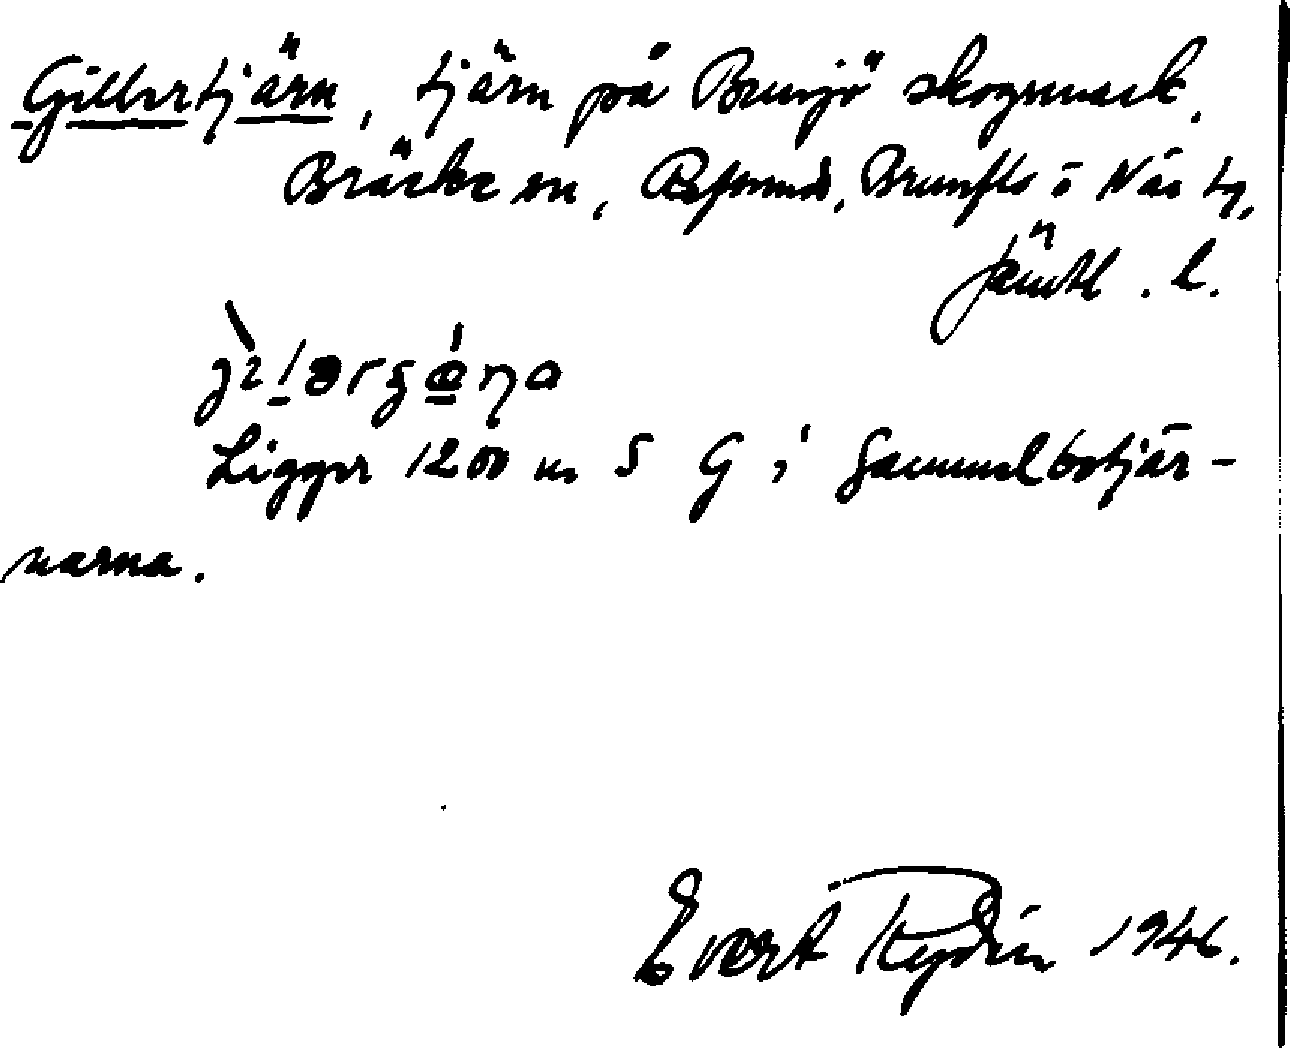 Gillertjärn, tjärn på Bensjö skogsmark.
Bräcke sn, Refsunds, Brunflo o Näs tg,
Jämtl. l.
Ligger 1200 m S G i Gammelbotjär-
narna.
Evert Rydin 1946.